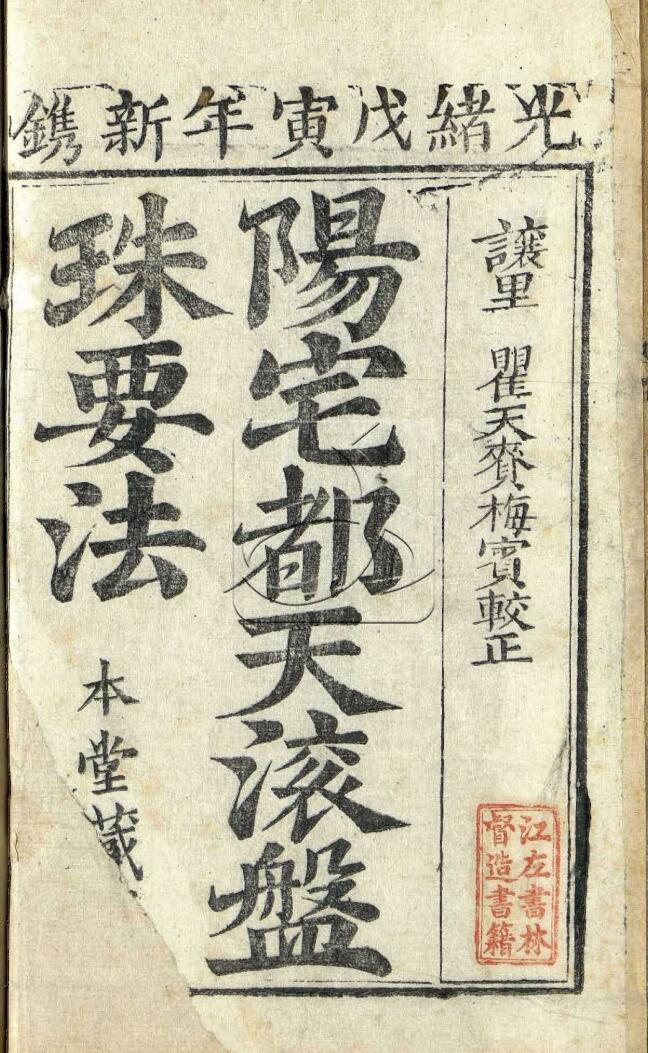 光緒戊寅年新鐫
讓里 瞿天賚梅賓較正
陽宅都天滚盤
珠要法
本堂藏
江左書林
督造書籍